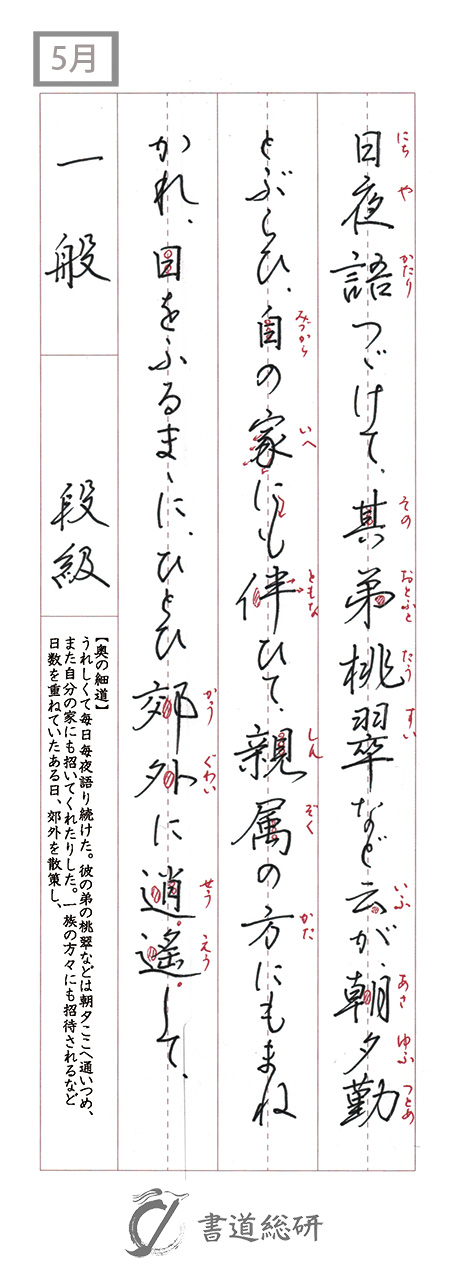 5月
日夜語つゞけて、其弟桃翠など云が、朝夕勤
にち や かたり その おとふと たう すい いふ あさ ゆふ つとめ
とぶらひ、自の家にも伴ひて、親属の方にもまね
みづから いへ ともな しん ぞく かた
かれ、日をふるまゝに、ひとひ郊外に逍遙して、
かう ぐわい せう えう
一般 段級
【奥の細道】
うれしくて毎日毎夜語り続けた。彼の弟の桃翠などは朝夕ここへ通いつめ、
また自分の家にも招いてくれたりした。一族の方々にも招待されるなど
日数を重ねていたある日、郊外を散策し、
書道総研